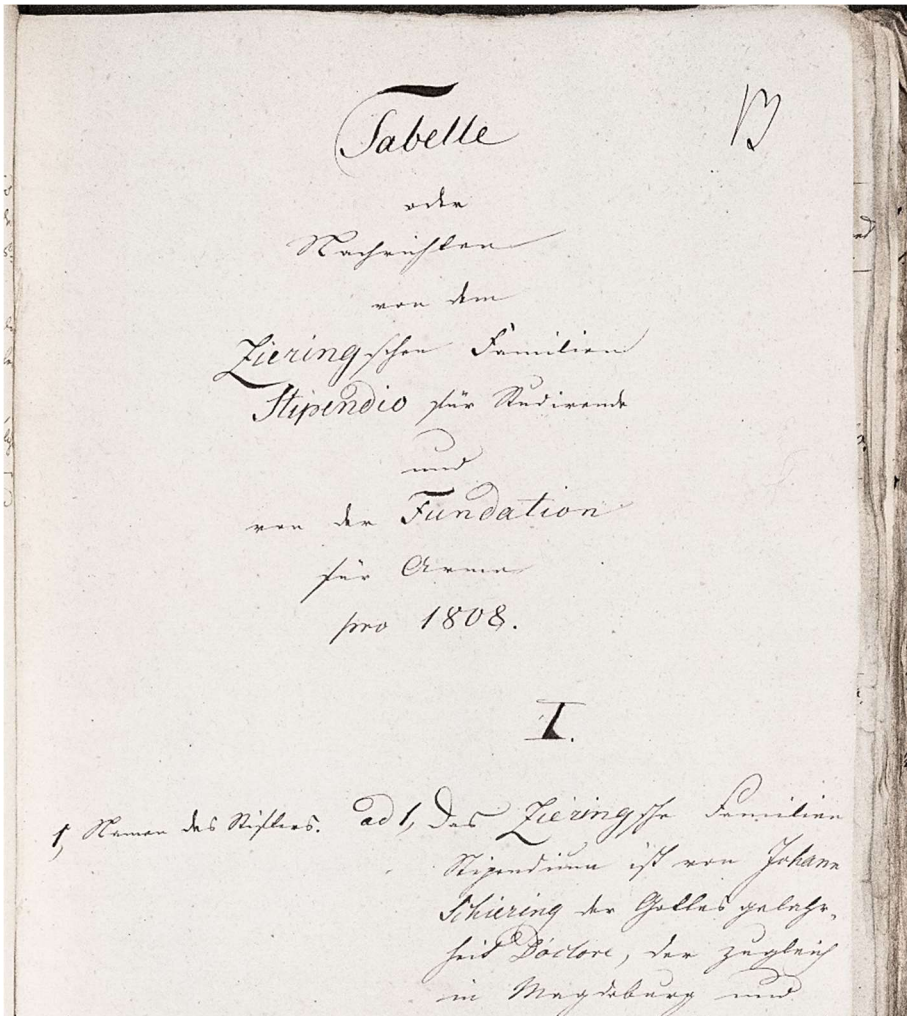 Tabelle
oder
Nachrichten
von dem
Zieringschen Familien
Stipendio für Studirende
und
von der Fundation
für Arme
pro 1808.
I.
1, Namen des Stifters. ad 1, Das Zieringsche Familien
Stipendium ist von Johann
Schiering der Gottesgelahr-
heit Doctore, der zugleich
in Magdeburg und